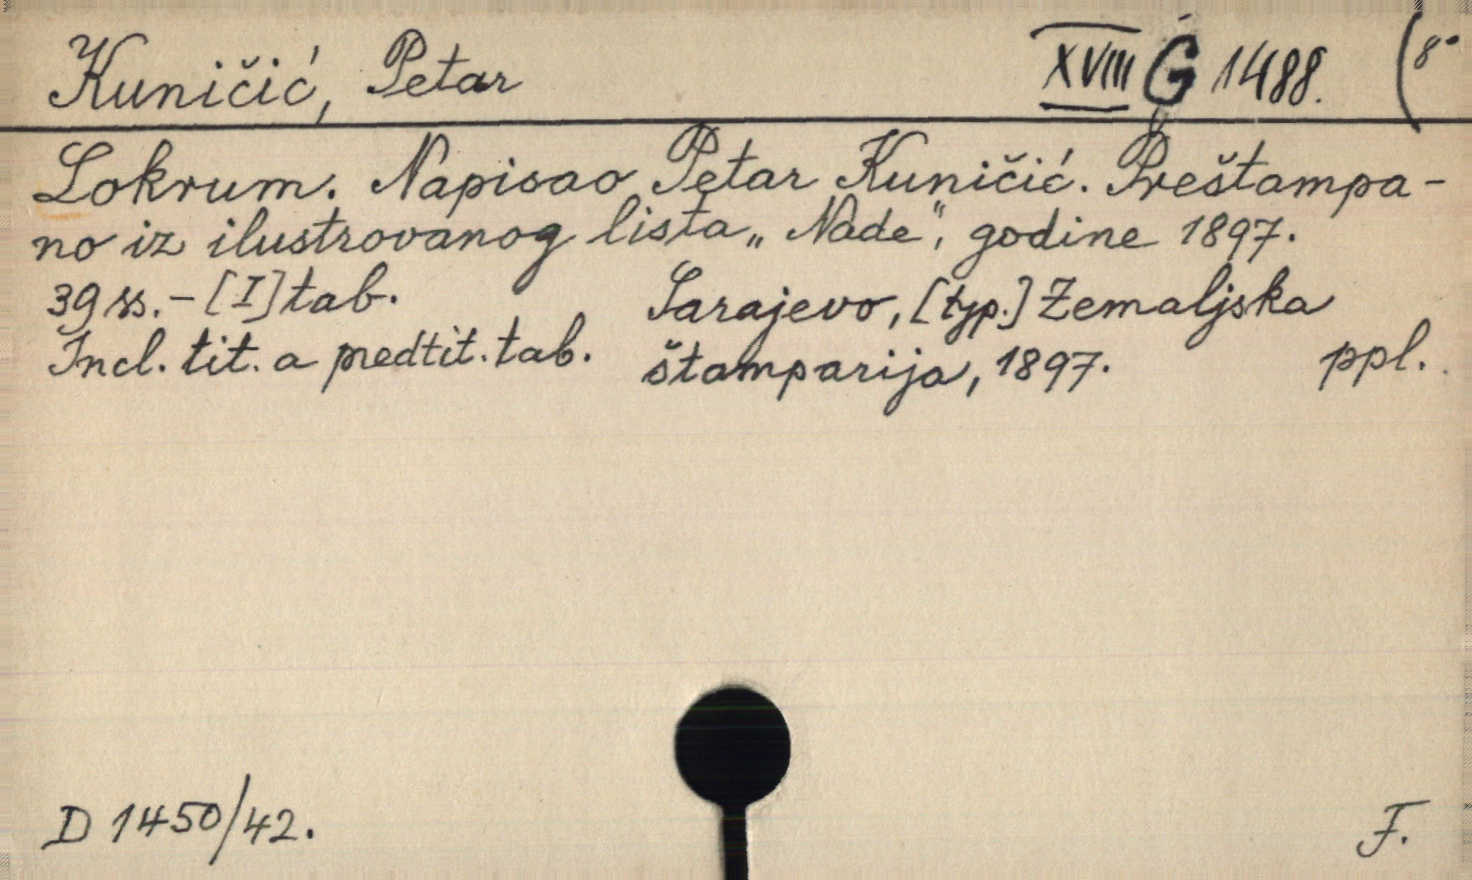 Kuničić, Petar
XVIII G 1488. (8°
Lokrum. Napisao Petar Kuničić. Preštampa-
no iz ilustrovanog lista „Nade", godine 1897.
39 ss. - [I] tab.
Incl. tit. a predtit. tab.
Sarajevo, [typ.] Zemaljska
štamparija, 1897.
ppl.
D 1450/42.
F.